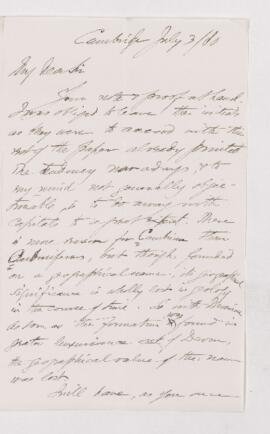 Cambridge July 3/80
My dear Sir
Your note & proof at hand.
I was obliged to leave the initials
as they were to accord with the
rest of the paper already printed
The tendency nowadays, & to
my mind not generally objec-
tionable, is to do away with
capitals to a great extent. There
is more reason for Cambrian than
Carboniferous, but though founded
on a geographical name, its geographical
significance is wholly lost in geology
in the course of time. So with Devonian
as soon as the formation was found in
greater luxuriance out of Devon,
the geographical value of the name
was lost
I will have, as you once